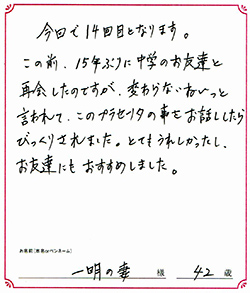 今回で14回目となります。
この前、15年ぶりに中学のお友達と
再会したのですが、変わらないねぃっと
言われて、このプラセンタの事をお話ししたら
びっくりされました。とてもうれしかったし、
お友達にもおすすめしました。
お名前[本名orペンネーム]
一明の妻 様 42 歳